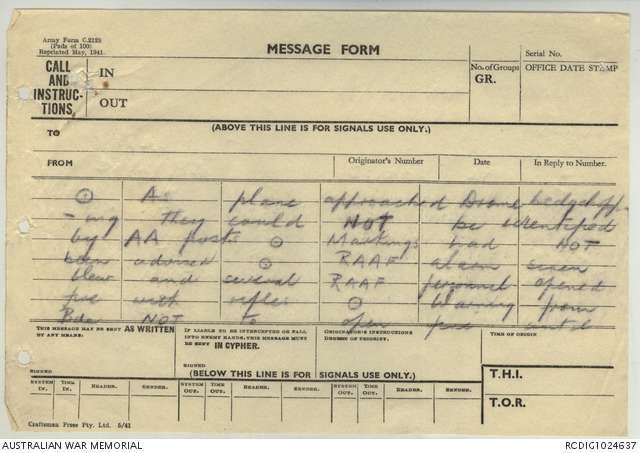 Army Form C.2128
(Pads of 100)
Reprinted May, 1941.
MESSAGE FORM
Serial No.
CALL AND INSTRUCTIONS
IN
OUT
No. of Groups
GR.
OFFICE DATE STAMP
(ABOVE THIS LINE IS FOR SIGNALS USE ONLY.)
TO
FROM
Originator's Number
Date
In Reply to Number.
As plane approached Drome hedgehopp
- ing they could NOT be identified
by AA posts Markings had NOT
been RAAF alarm siren
blew and several RAAF personnel opened
fire with rifles Warning from
Bde NOT to open fire until
THIS MESSAGE MAY BE SENT AS WRITTEN
BY ANY MEANS.
IF LIABLE TO BE INTERCEPTED OR FALL
INTO ENEMY HANDS, THIS MESSAGE MUST
BE SENT IN CYPHER.
ORIGINATOR'S INSTRUCTIONS
DEGREE OF PRIORITY.
TIME OF ORIGIN
SIGNED
SIGNED
(BELOW THIS LINE IS FOR SIGNALS USE ONLY.)
T.H.I.
T.O.R.
SYSTEM IN. TIME IN. READER. SENDER. SYSTEM OUT. TIME OUT. READER. SENDER. SYSTEM OUT. TIME OUT. READER. SENDER.
Craftsman Press Pty. Ltd. 5/41
AUSTRALIAN WAR MEMORIAL
RCDIG1024637